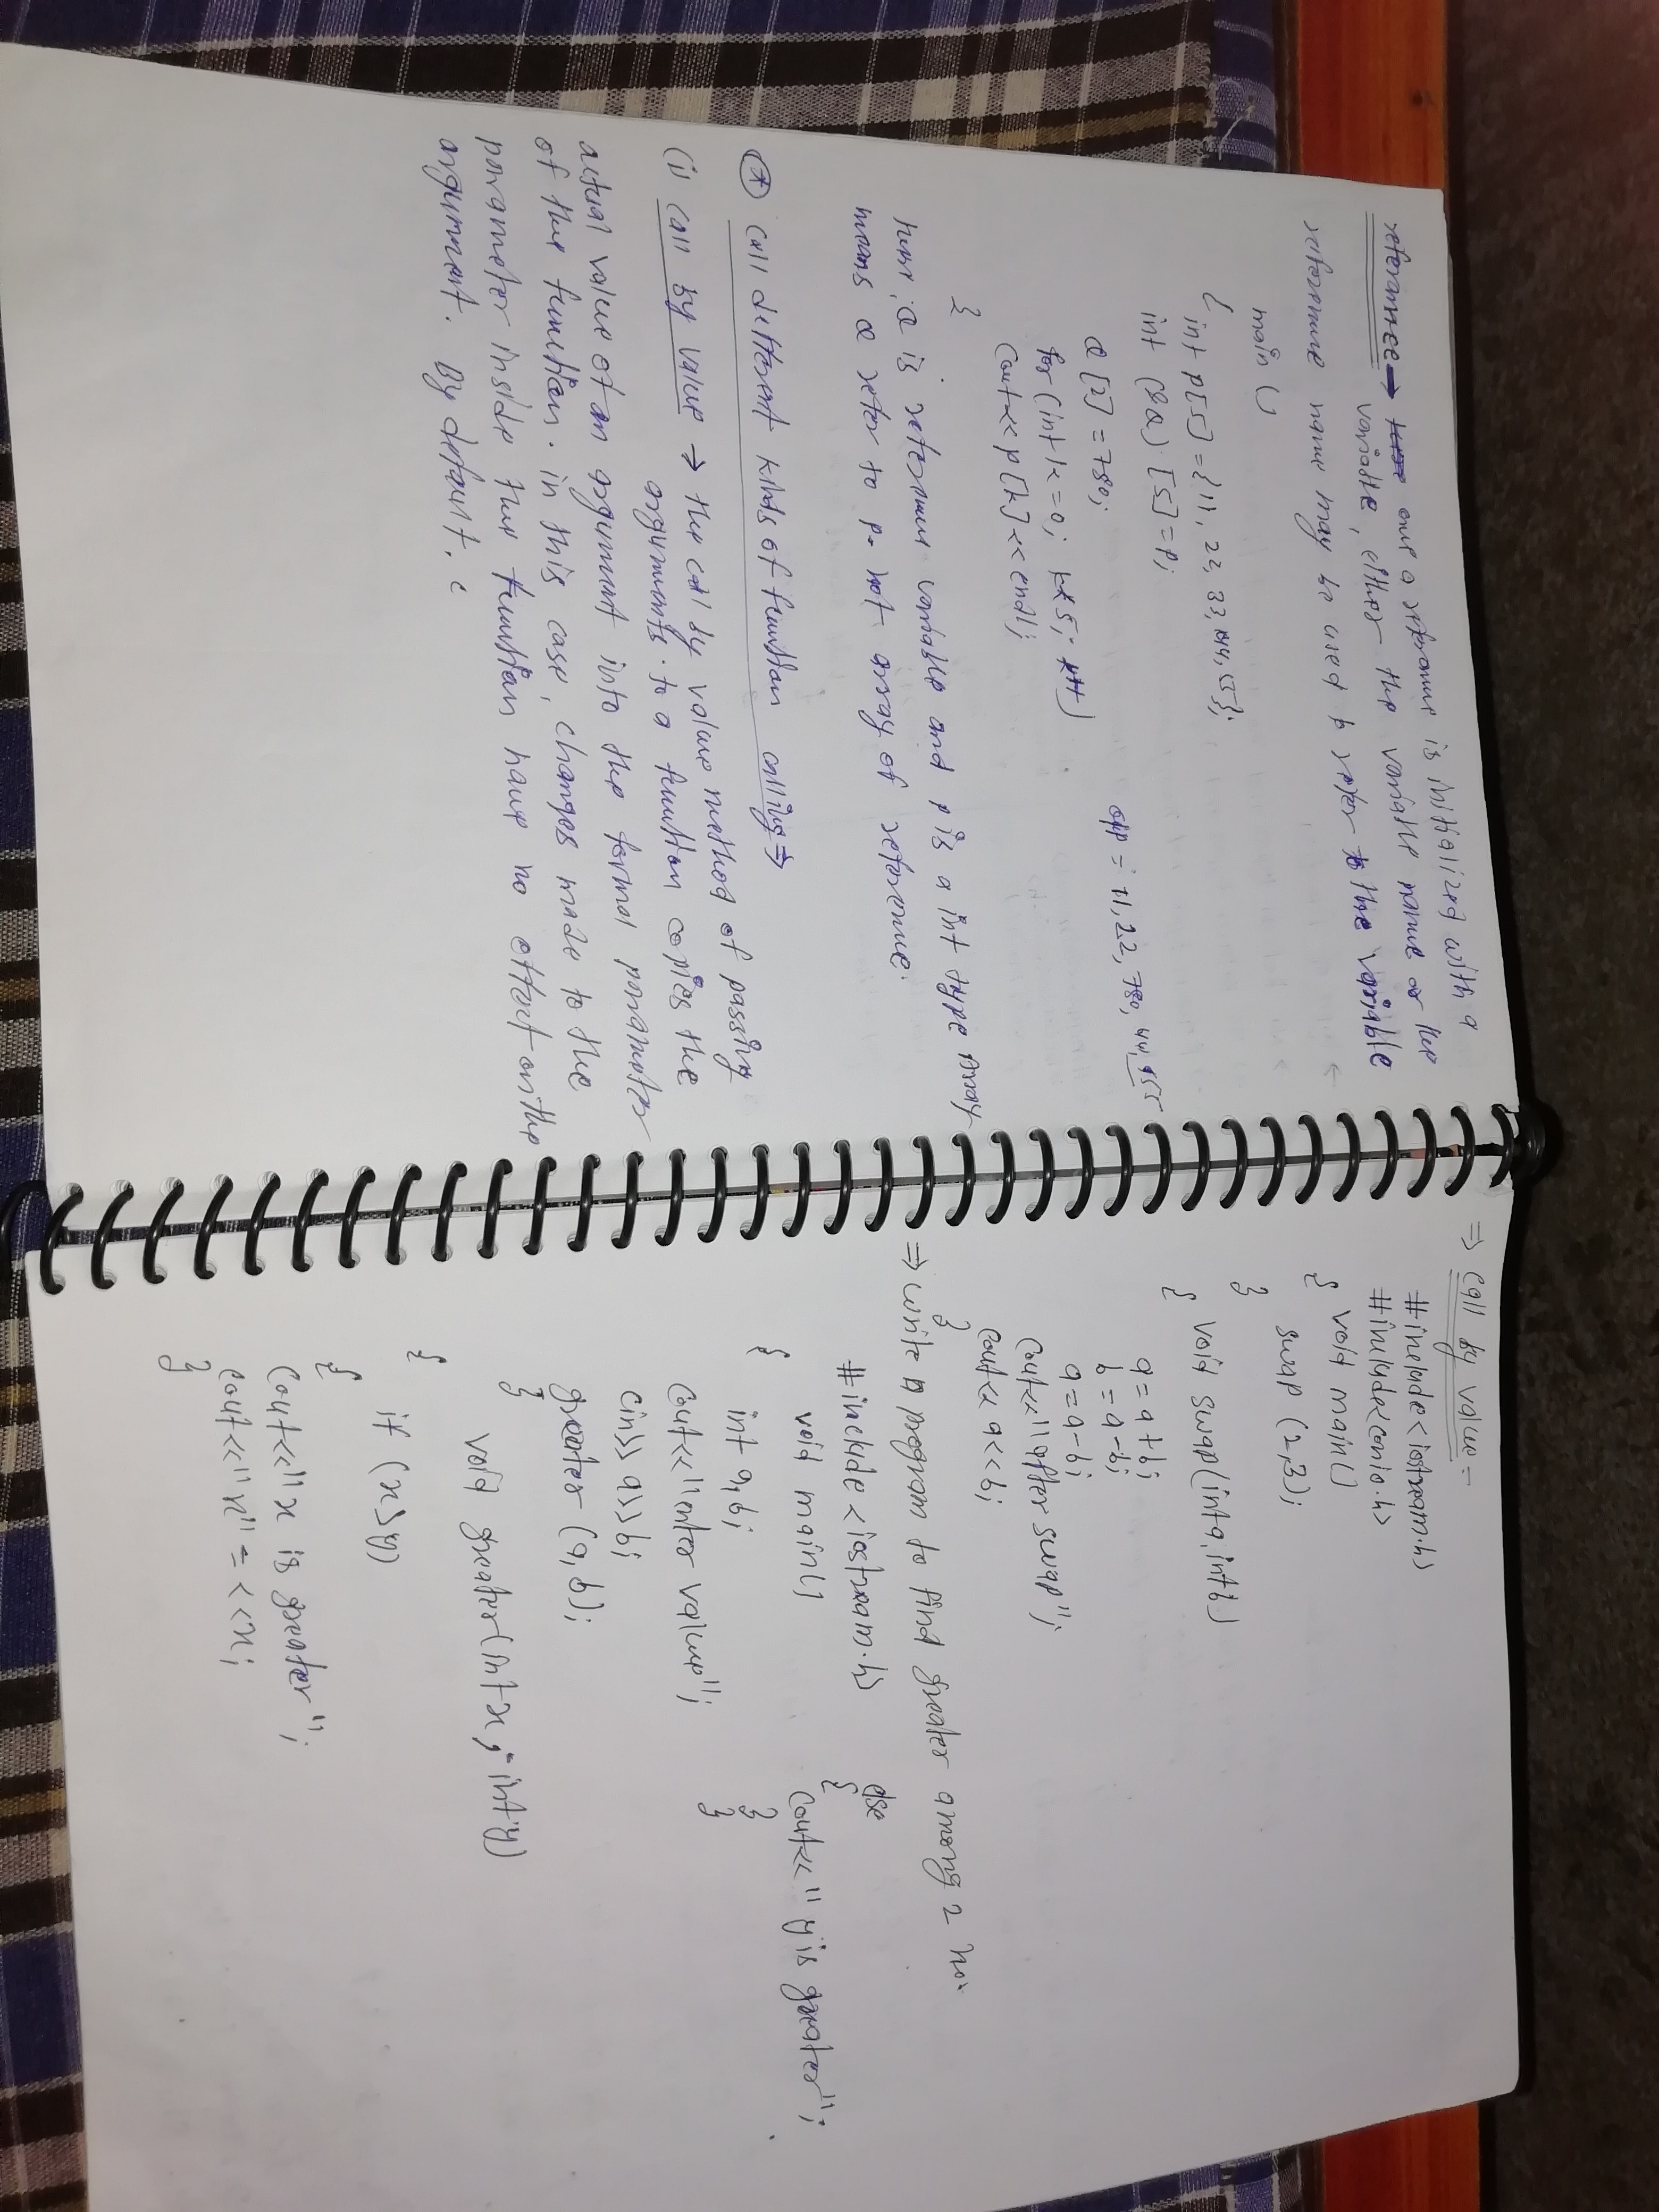 referances → one a referance is initialized with a
variable, either the variable name or the
reference name may be used to refer to the variable
main ()
{
int p[5] = {11, 22, 33, 44, 55};
int (&a) [5] = p;
a [2] = 780;
for (int k = 0; k<5; k++)
cout<< p[k] << endl;
}
o/p = 11, 22, 780, 44, 55
here, a is reference variable and p is a int type array
means a refer to p. not array of reference.
* call different kinds of function calling ⇒
(i) call by value → the call by value method of passing
arguments to a function copies the
actual value of an argument into the formal parameter
of the function. in this case, changes made to the
parameter inside the function have no effect on the
argument. By default,
⇒ Call by value =
#include<iostream.h>
#include<conio.h>
void main()
{
swap (2,3);
}
void swap(int a, int b)
{
a = a + b;
b = a - b;
a = a - b;
cout<<"after swap";
cout<< a<<b;
}
⇒ write a program to find greater among 2 no.
#include <iostream.h>
void main()
{
int a,b;
cout<<"enter value";
cin>> a>>b;
greater (a, b);
}
void greater(int x, int y)
{
if (x>y)
{
cout<<"x is greater";
cout<<"x"=<<x;
}
else
{
cout<<"y is greater";
}
}